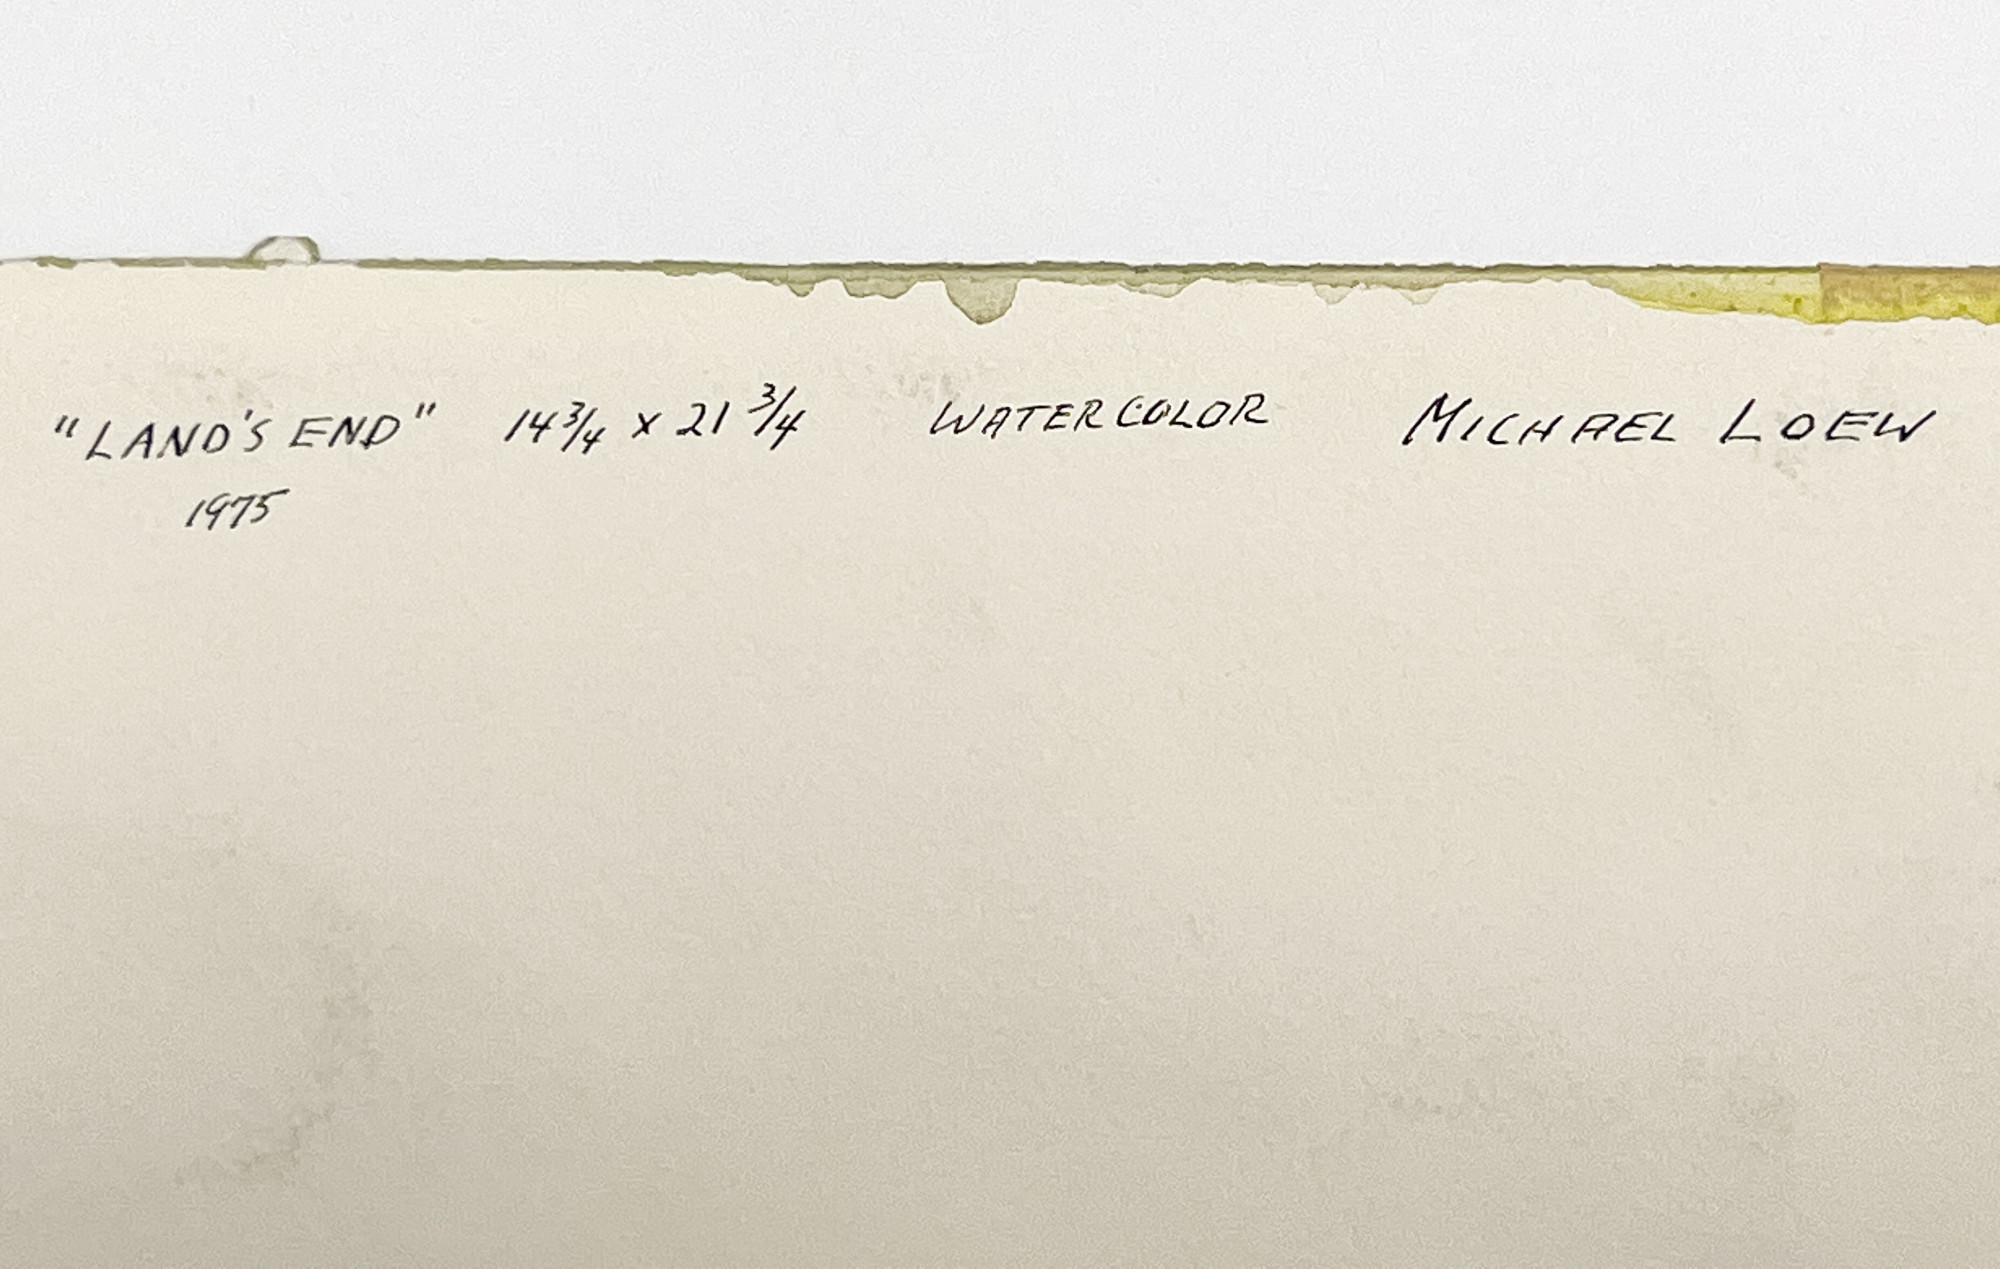 "LAND'S END" 14 3/4 x 21 3/4 WATERCOLOR MICHAEL LOEW
1975